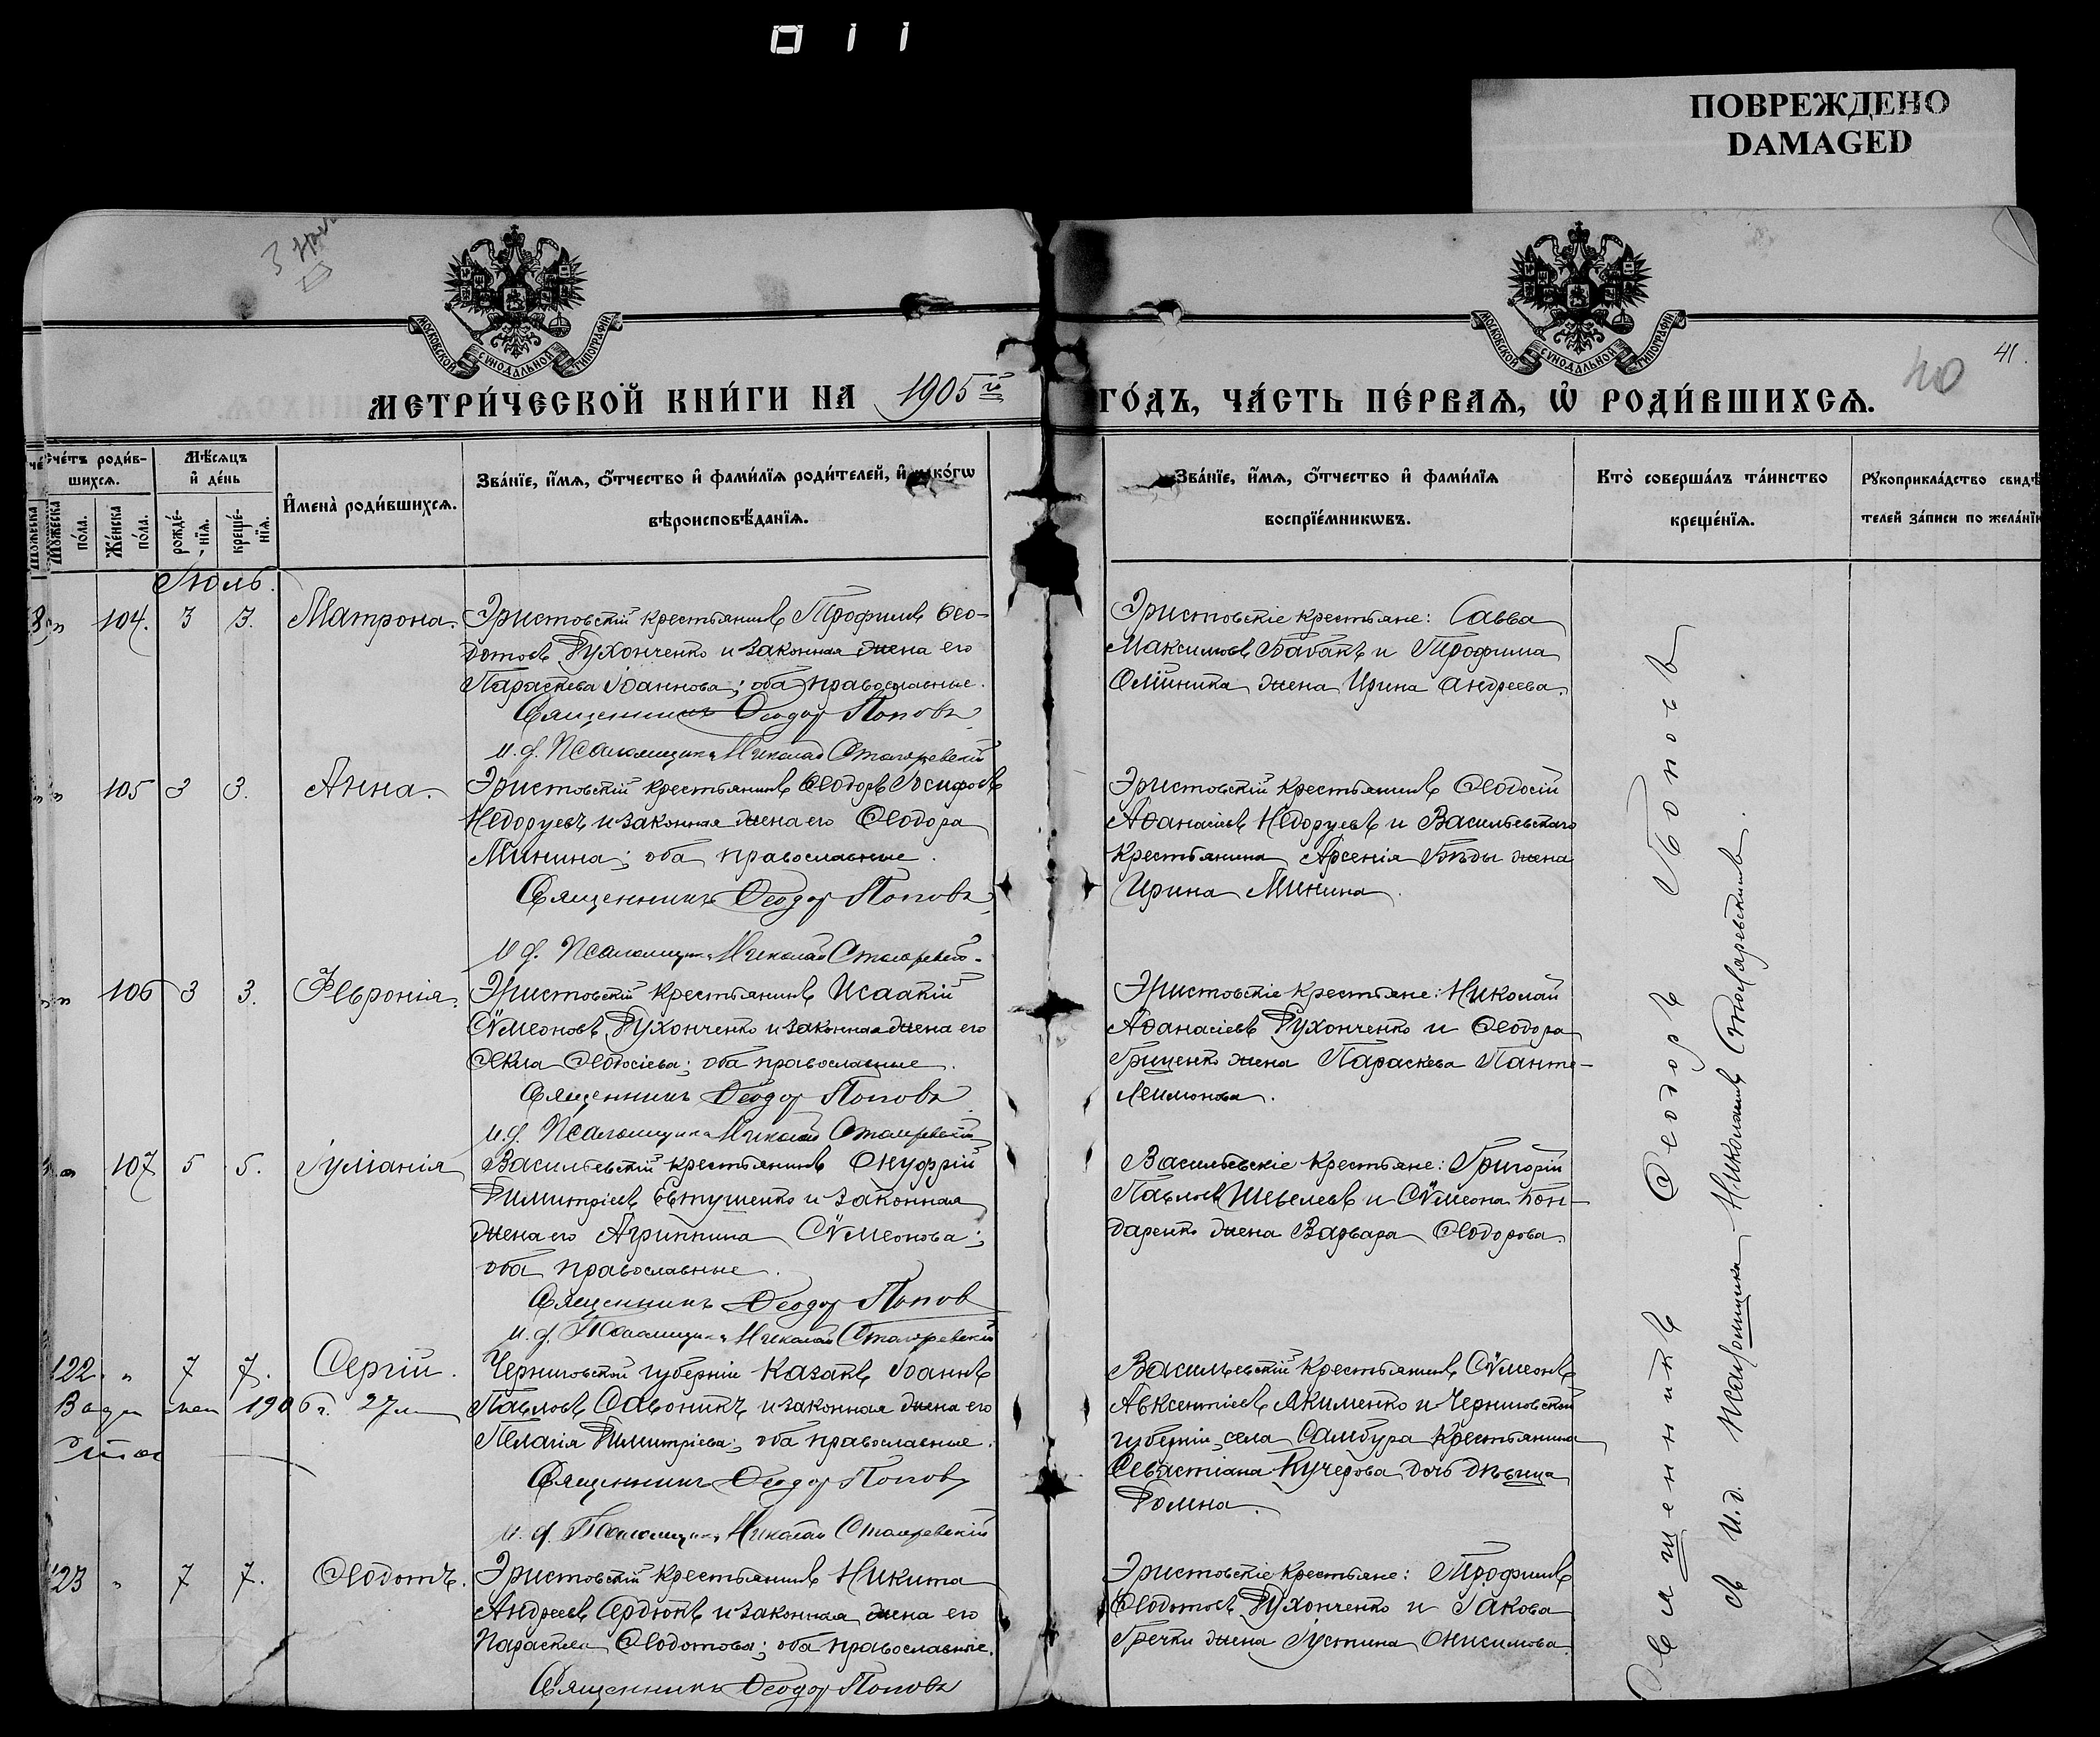 ПОВРЕЖДЕНО
DAMAGED
МОСКОВСКОЙ СѴНОДАЛЬНОЙ ТИПОГРАФІИ
МОСКОВСКОЙ СѴНОДАЛЬНОЙ ТИПОГРАФІИ
40
41.
МЕТРИ́ЧЕСКОЙ КНИ́ГИ НА 1905й ГО́ДЪ, ЧА́СТЬ ПЕ́РВАѦ, Ѡ҆ РОДИ́ВШИХСѦ.
Счетъ роди́вшихсѧ.
Мꙋжеска по́ла.
Же́нска по́ла.
Мѣ́сѧцъ и҆ де́нь
рожде́-нїѧ.
креще́-нїѧ.
И҆мена̀ роди́вшихсѧ.
Зва́нїе, и҆́мѧ, ѻ҆́тчество и҆ фами́лїѧ роди́телей, и҆ како́гѡ
вѣроисповѣ́данїѧ.
Зва́нїе, и҆́мѧ, ѻ҆́тчество и҆ фами́лїѧ
воспрїе́мникѡвъ.
Кто̀ соверша́лъ та́инство
креще́нїѧ.
Рꙋкоприкла́дство свидѣ́
телей за́писи по жела́нїю
Іюль.
" 104. 3 3. Матрона. Эристовскій крестьянинъ Трофимъ Ѳео-
дотовъ Духонченко и законная жена его
Параскева Іоаннова; оба православные.
Священникъ Ѳеодоръ Поповъ
и.д. Псаломщика Николай Столяревскій
Эристовскіе крестьяне: Савва
Максимовъ Бабакъ и Трофима
Олійника жена Ирина Андреева.
" 105 3 3. Анна. Эристовскій крестьянинъ Ѳеодоръ Іосифовъ
Недоруевъ и законная жена его Ѳеодора
Минина; оба православные.
Священникъ Ѳеодоръ Поповъ
и д. Псаломщика Николай Столяревскій
Эристовскій крестьянинъ Ѳеодосій
Аѳанасіевъ Недоруевъ и Васильевскаго
крестьянина Арсенія Бѣды жена
Ирина Минина.
" 106 3 3. Февронія. Эристовскій крестьянинъ Исаакій
Сѵмеоновъ Духонченко и законная жена его
Ѳекла Ѳеодосіева; оба православные.
Священникъ Ѳеодоръ Поповъ
и.д. Псаломщика Николай Столяревскій
Эристовскіе крестьяне: Николай
Аѳанасіевъ Духонченко и Ѳеодора
Гриценко жена Параскева Панте-
леимонова.
" 107 5 5. Іуліанія Васильевскій крестьянинъ Онуфрій
Димитріевъ Евтушенко и законная
жена его Агриппина Сѵмеонова;
оба православные.
Священникъ Ѳеодоръ Попов
и.д. Псаломщика Николай Столяревскій
Васильевскіе крестьяне: Григорій
Павловъ Шевелевъ и Сѵмеона Бон-
даренко жена Варвара Ѳеодорова.
122. " 7 7. Сергій. Черниговской губерніи казакъ Іоаннъ
Павловъ Савоникъ и законная жена его
Пелагія Димитріева; оба православные.
Священникъ Ѳеодоръ Поповъ
и.д. Псаломщика Николай Столяревскій
1906 г. 27
Васильевскій крестьянинъ Сѵмеонъ
Авксентіевъ Якименко и Черниговской
губерніи, села Самбура крестьянина
Севастіана Кучерова дочь дѣвица
Домна.
123 " 7 7. Ѳеодотъ. Эристовскій крестьянинъ Никита
Андреевъ Сердюкъ и законная жена его
Параскева Ѳеодотова; оба православные.
Священникъ Ѳеодоръ Поповъ
Эристовскіе крестьяне: Трофимъ
Ѳеодотовъ Духонченко и Іакова
Гречки жена Іустина Онисимова.
Священникъ Ѳеодоръ Поповъ
И.д. Псаломщика Николай Столяревскій.